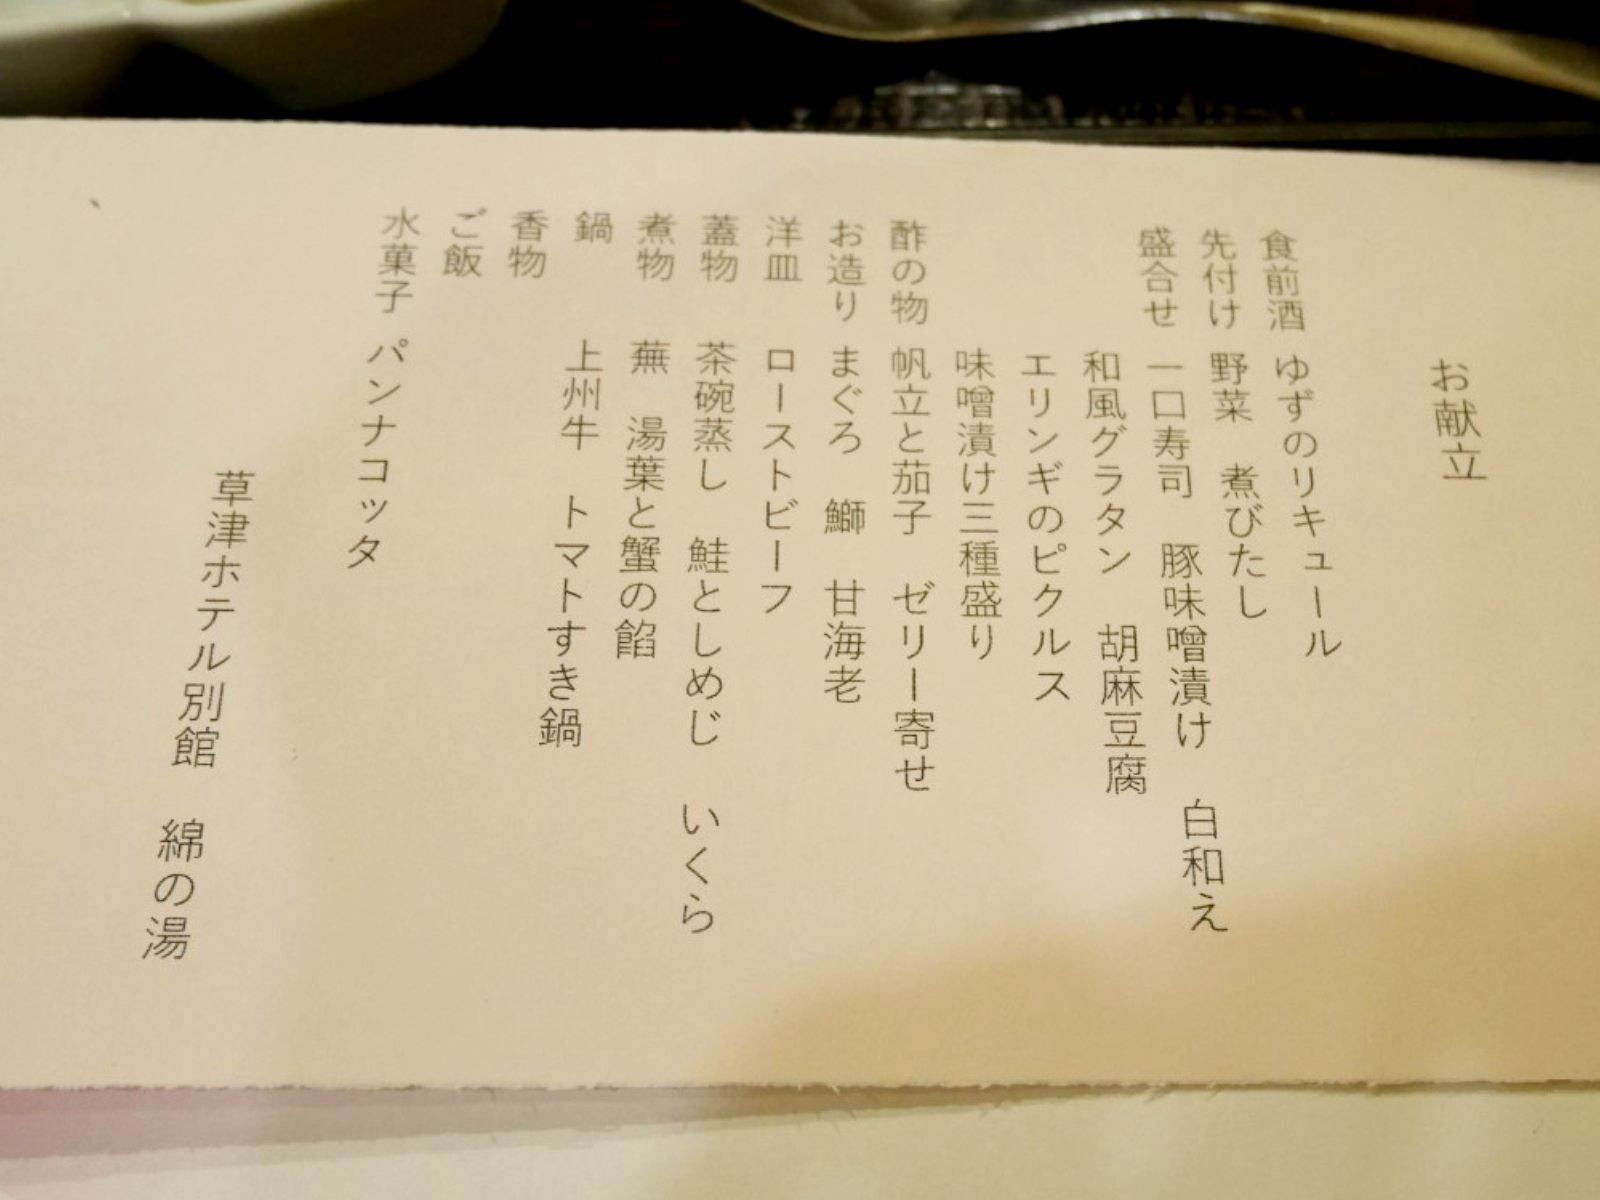 お献立
食前酒 ゆずのリキュール
先付け 野菜 煮びたし
盛合せ 一口寿司 豚味噌漬け 白和え
和風グラタン 胡麻豆腐
エリンギのピクルス
味噌漬け三種盛り
酢の物 帆立と茄子 ゼリー寄せ
お造り まぐろ 鰤 甘海老
洋皿 ローストビーフ
蓋物 茶碗蒸し 鮭としめじ いくら
煮物 蕪 湯葉と蟹の餡
鍋 上州牛 トマトすき鍋
香物
ご飯
水菓子 パンナコッタ
草津ホテル別館 綿の湯